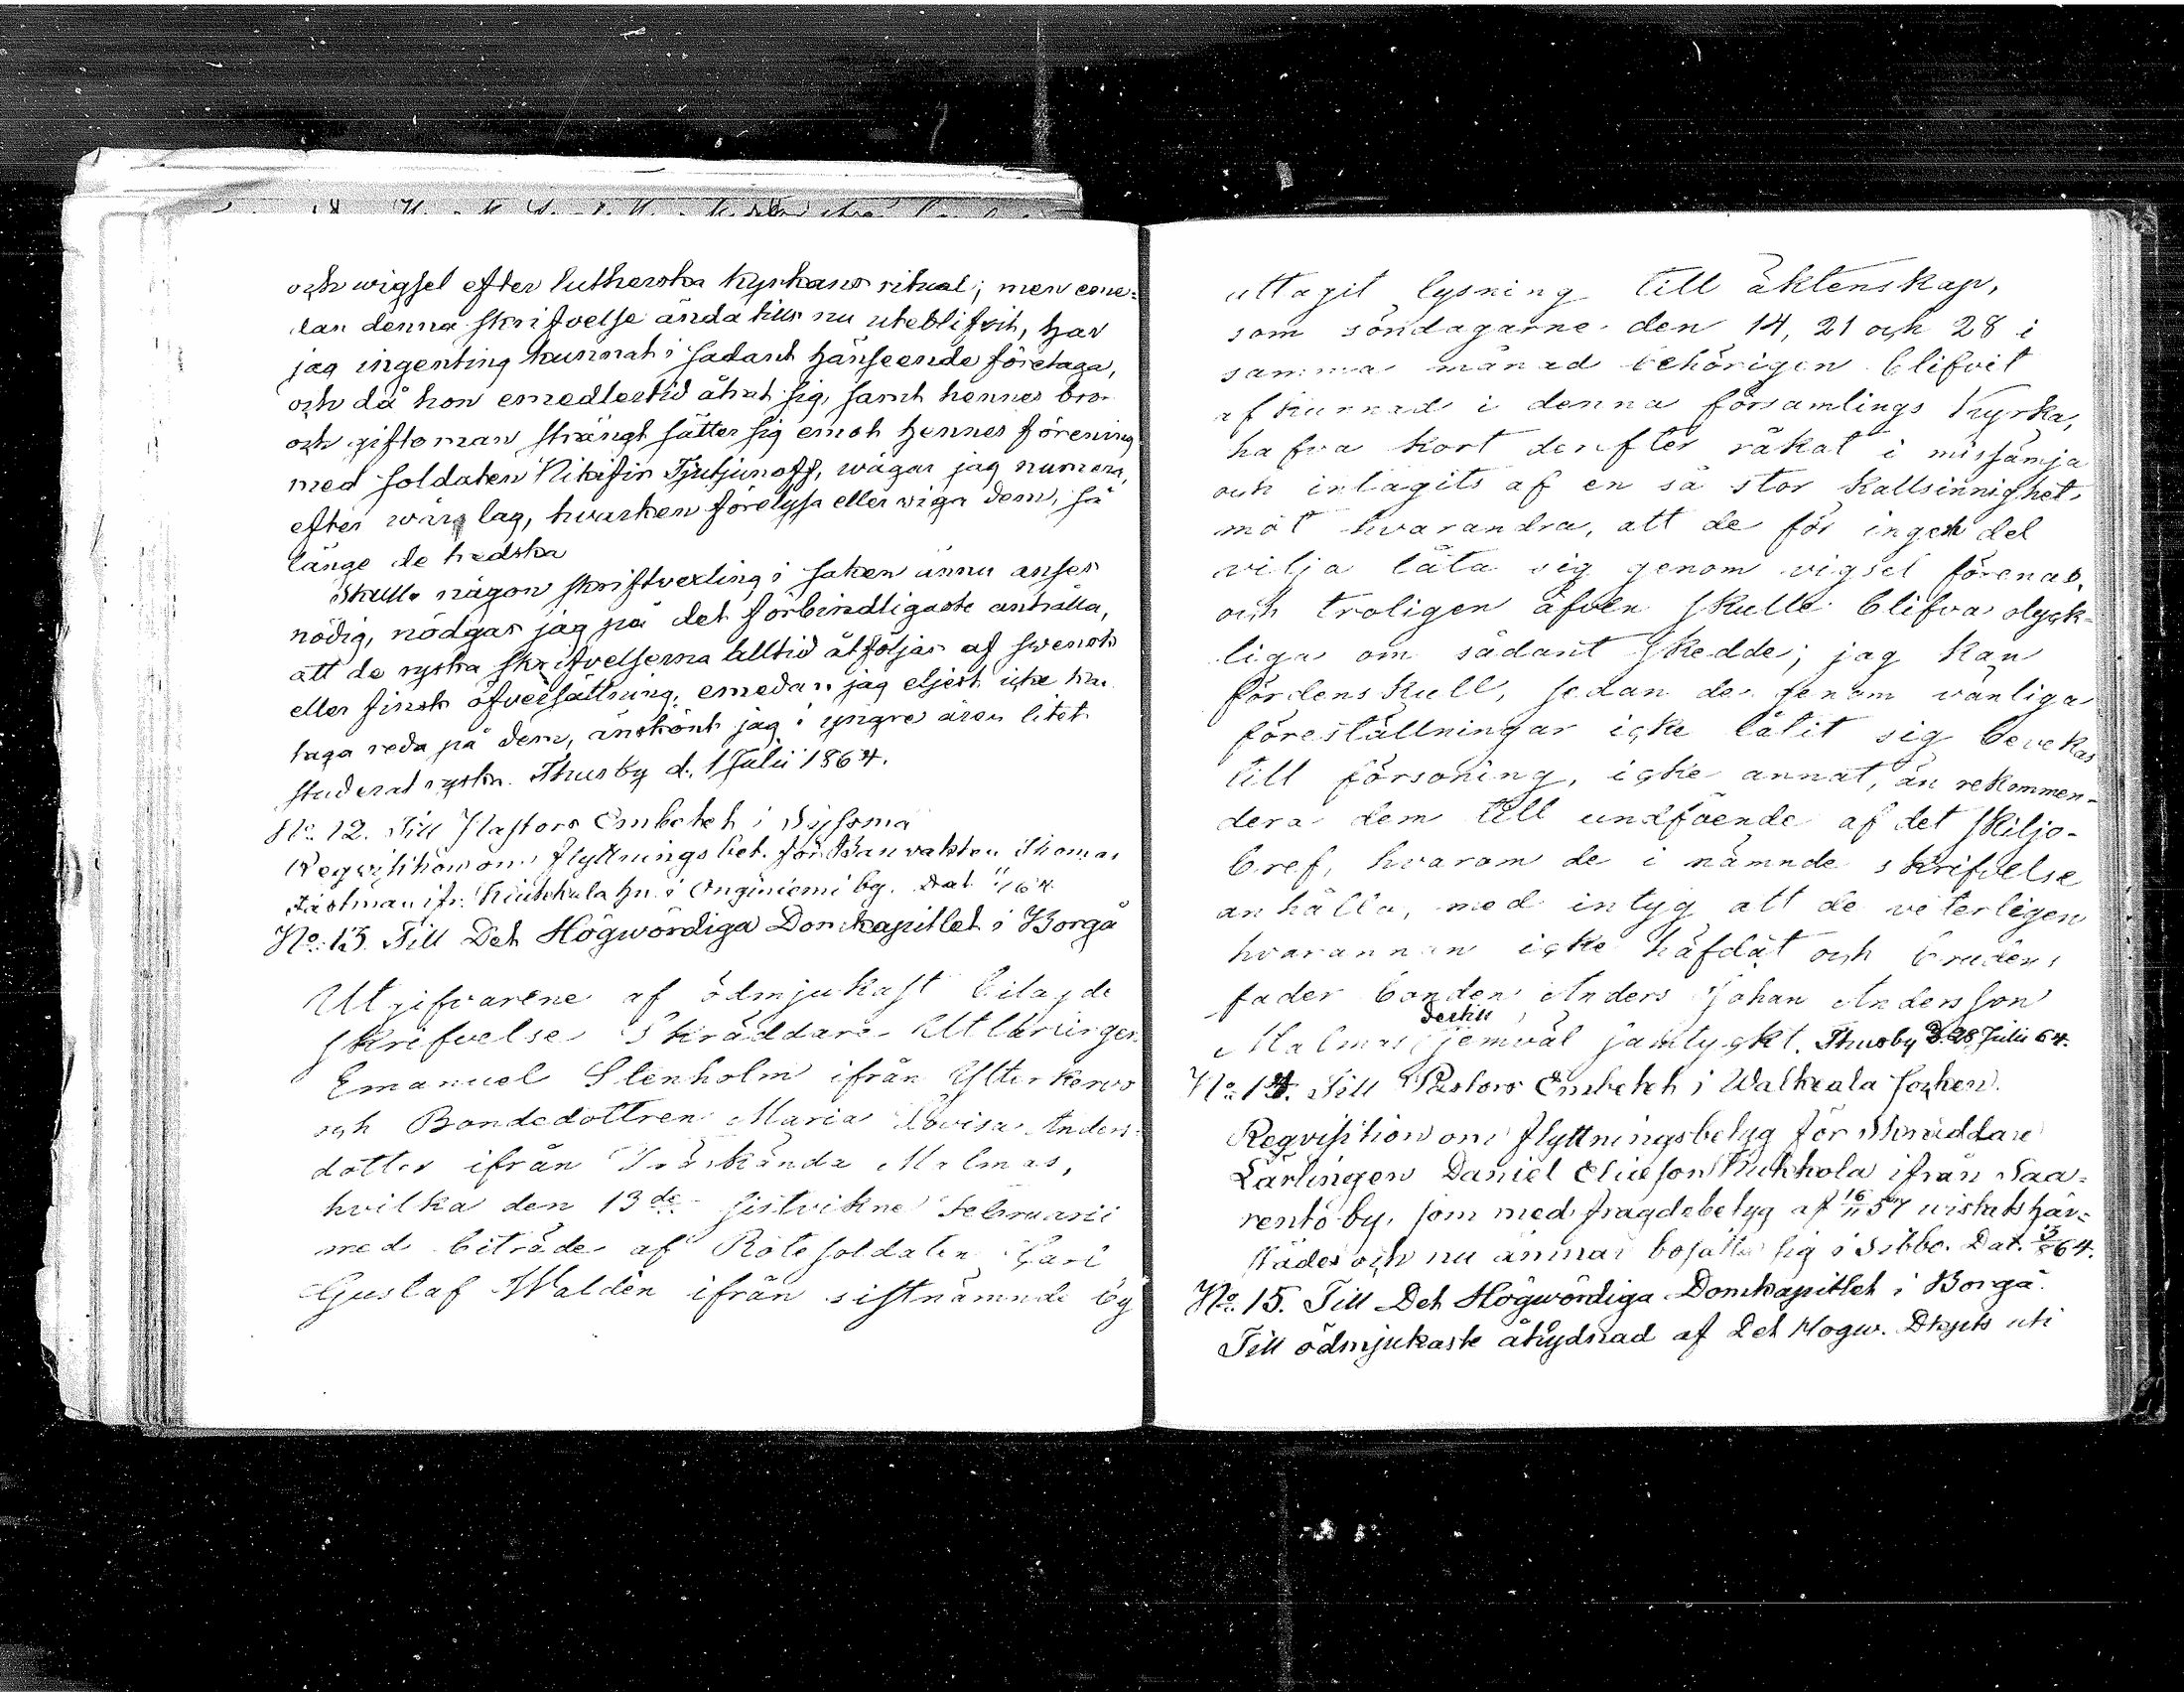 och wigsel efter lutherska kyrkans ritual; men eme-
dan denna skrifvelse ända tills nu uteblifvit, har
jag ingenting kunnat i sådant hänseende företaga,
och då hon emedlertid åtrat sig, samt hennes bror
och giftoman strängt sätter sig emot hennes förening
med soldaten Nikifir Tjutjunoff, wågar jag numera,
efter wår lag, hwarken förelysa eller wiga dem, så
länge de tredska
Skulle någon skriftvexling i saken ännu anses
nödig, nödgas jag på det förbindligaste anhålla,
att de ryska skrifvelserna alltid åtföljas af swensk
eller finsk öfversättning, emedan jag eljest icke kan
taga reda på dem, änskönt jag i yngre åren litet
studerat ryska. Thusby d. 1 Julii 1864.
No. 12. Till Pastors Embetet i Sysmä
Reqvisition om flyttningsbet. för Banvakten Thomas
ifr. hn. i Onginiemi by. Dat.
No. 13. Till Det Högwördiga Domkapitlet i Borgå
Utgifvarene af ödmjukast bilagde
skrifvelse Skräddare Utlärlingen
Emanuel Stenholm ifrån Ytterkervo
och Bondedottren Maria Lovisa Anders-
dotter ifrån Träskända Malmas,
hvilka den 13de sistvikne Februarii
med biträde af Rotesoldaten Carl
Gustaf Waldén ifrån sistnämnde by
uttagit lysning till äktenskap,
som söndagarne den 14, 21 och 28 i
samma månad behörigen blifvit
afkunnad i denna församlings kyrka,
hafva kort derefter råkat i missämja
och intagits af en så stor kallsinnighet
mot hvarandra, att de för ingen del
vilja låta sig genom vigsel förenas,
och troligen äfven skulle blifva olyck-
liga om sådant skedde; jag kan
fördenskull, sedan de genom vänliga
föreställningar icke låtit sig bevekas
till försoning, icke annat, än rekommen-
dera dem till undfående af det skiljo-
bref, hvarom de i nämnde skrifvelse
anhålla, med intyg att de veterligen
hvarannan icke häfdat och brudens
fader bonden Anders Johan Andersson
Malmas dertill jemväl samtyckt. Thusby d. 28 Julii 64.
No. 14. Till Pastors Embetet i Walkeala socken.
Reqvisition om flyttningsbetyg för Skräddare
Lärlingen Daniel Eliasson Kukkola ifrån Saa-
rento by, som med frägdebetyg af 16/11 57 wistats här-
städes och nu ämnar bosätta sig i Sibbo. Dat. 13/8 64.
No. 15. Till Det Högwördiga Domkapitlet i Borgå.
Till ödmjukaste åtlydnad af Det Högw. Dkpts uti